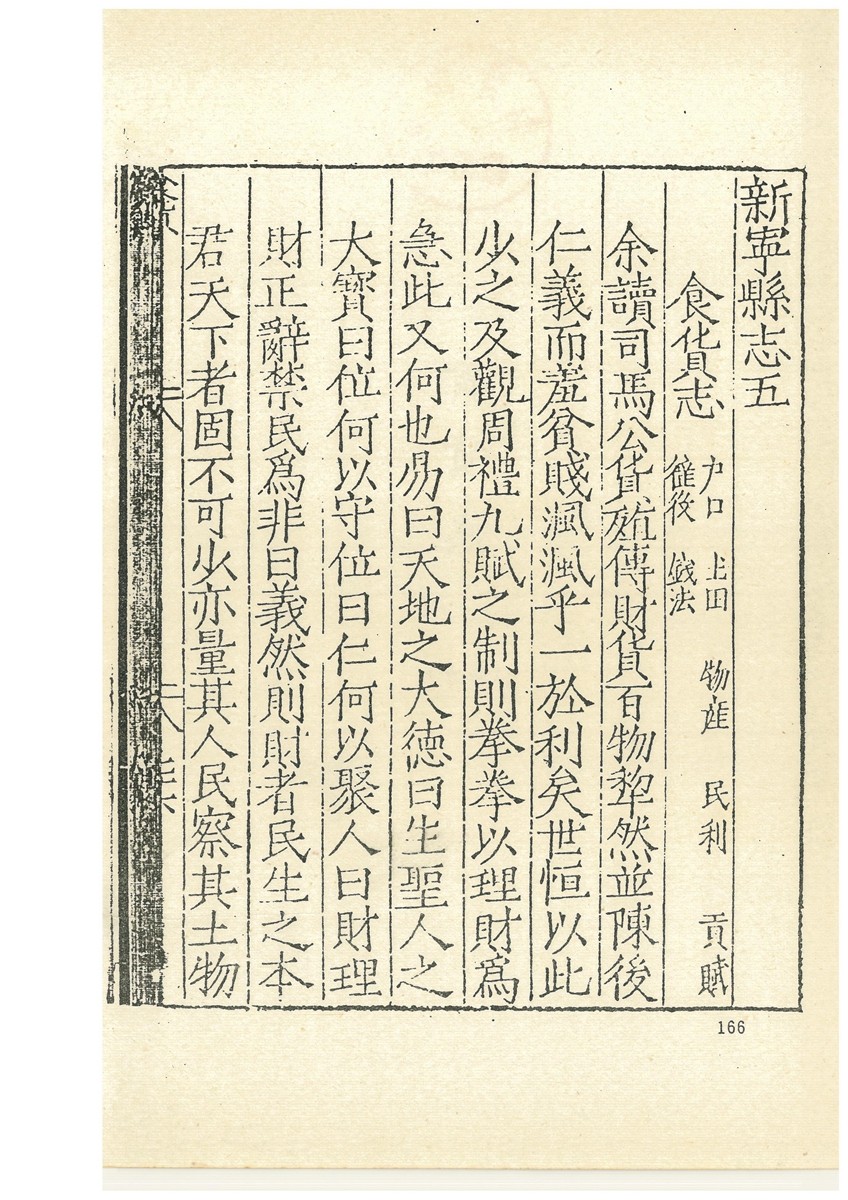 新寧縣志五
食貨志 户口 土田 物産 民利 貢賦
徭役 錢法
余讀司馬公貨殖傳財貨百物犂然並陳後
仁義而羞貧賤渢渢乎一於利矣世恒以此
少之及觀周禮九賦之制則拳拳以理財爲
急此又何也易曰天地之大德曰生聖人之
大寳曰位何以守位曰仁何以聚人曰財理
財正辭禁民爲非曰義然則財者民生之本
君天下者固不可少亦量其人民察其土物
166